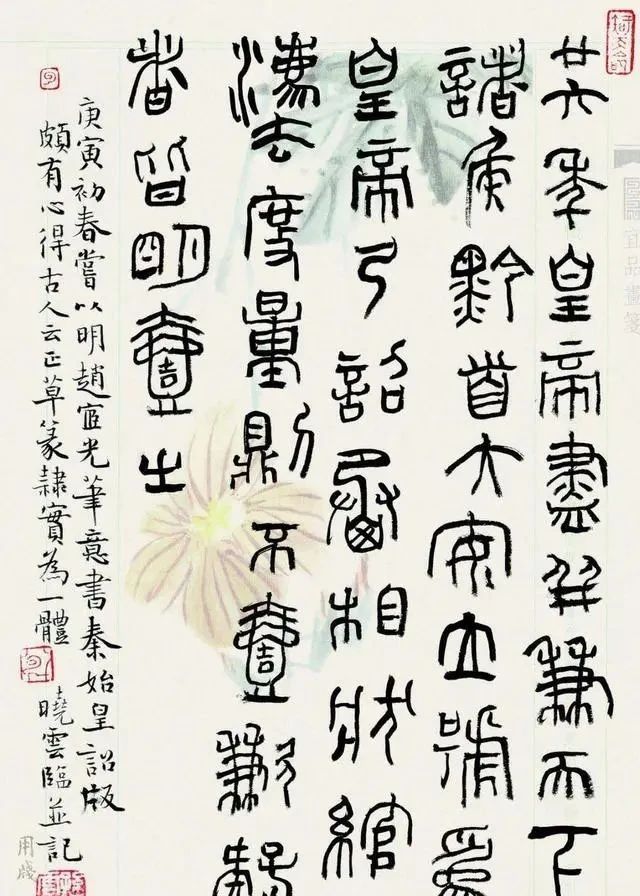 廿六年皇帝盡并兼天下
諸侯黔首大安立號為
皇帝乃詔丞相狀綰
灋度量則不壹歉疑
者皆明壹之
庚寅初春嘗以明趙宧光筆意書秦始皇詔版
頗有心得古人云正草篆隸實為一體 曉雲臨並記
宜品畫箋
用箋